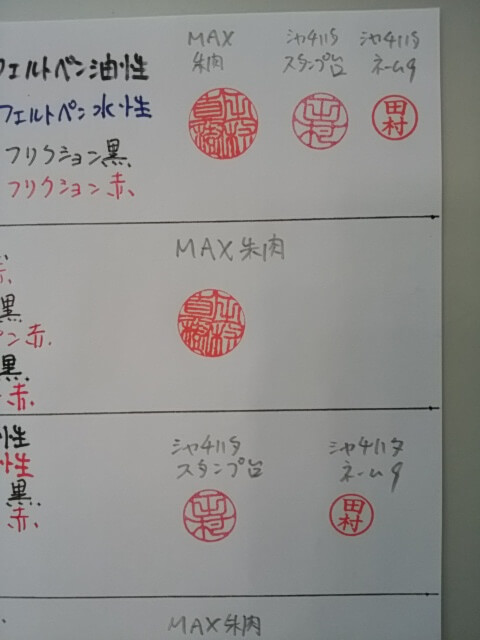 MAX
朱肉
シャチハタ
スタンプ台
シャチハタ
ネーム9
フェルトペン油性
フェルトペン水性
フリクション黒
フリクション赤
田村
MAX朱肉
赤
黒
ペン赤
黒
赤
性
性
黒
赤
シャチハタ
スタンプ台
シャチハタ
ネーム9
田村
MAX朱肉